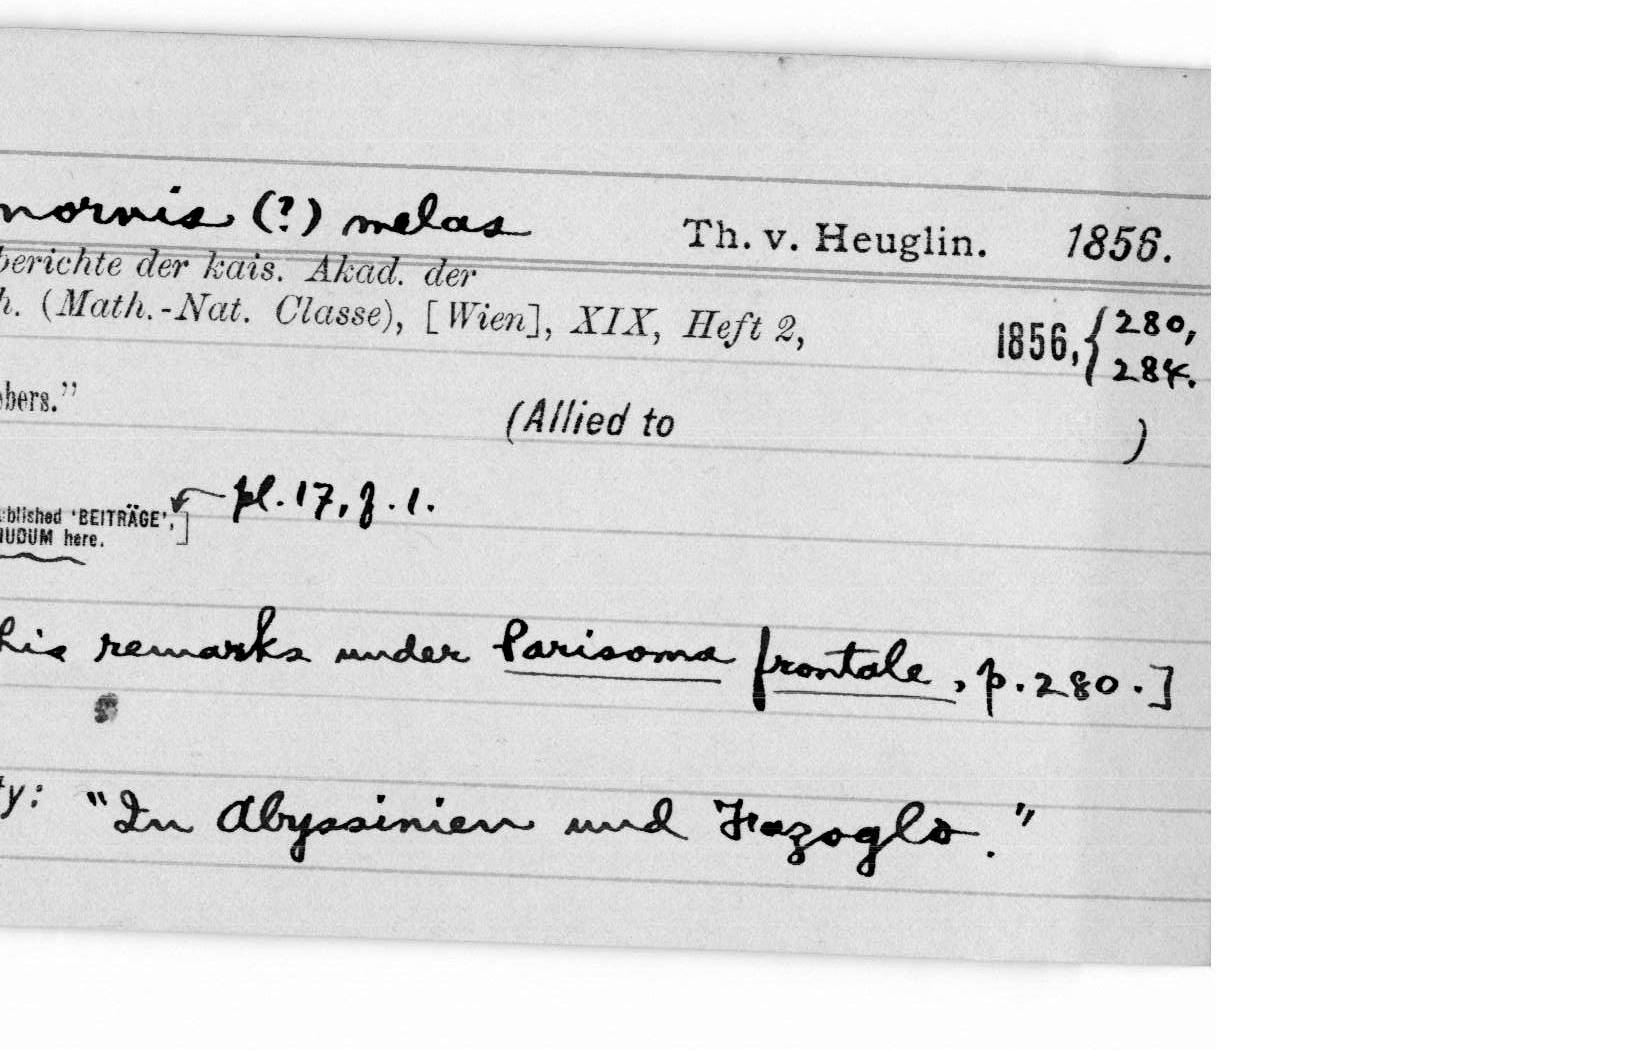 nornis (?) melas Th. v. Heuglin. 1856.
berichte der kais. Akad. der
h. (Math.-Nat. Classe), [Wien], XIX, Heft 2, 1856, { 280,
284.
bers.” (Allied to )
pl. 17, f. 1.
blished ‘BEITRÄGE’,]
NUDUM here.
his remarks under Parisoma frontale, p. 280.]
ty: "In Abyssinien und Fazoglo."